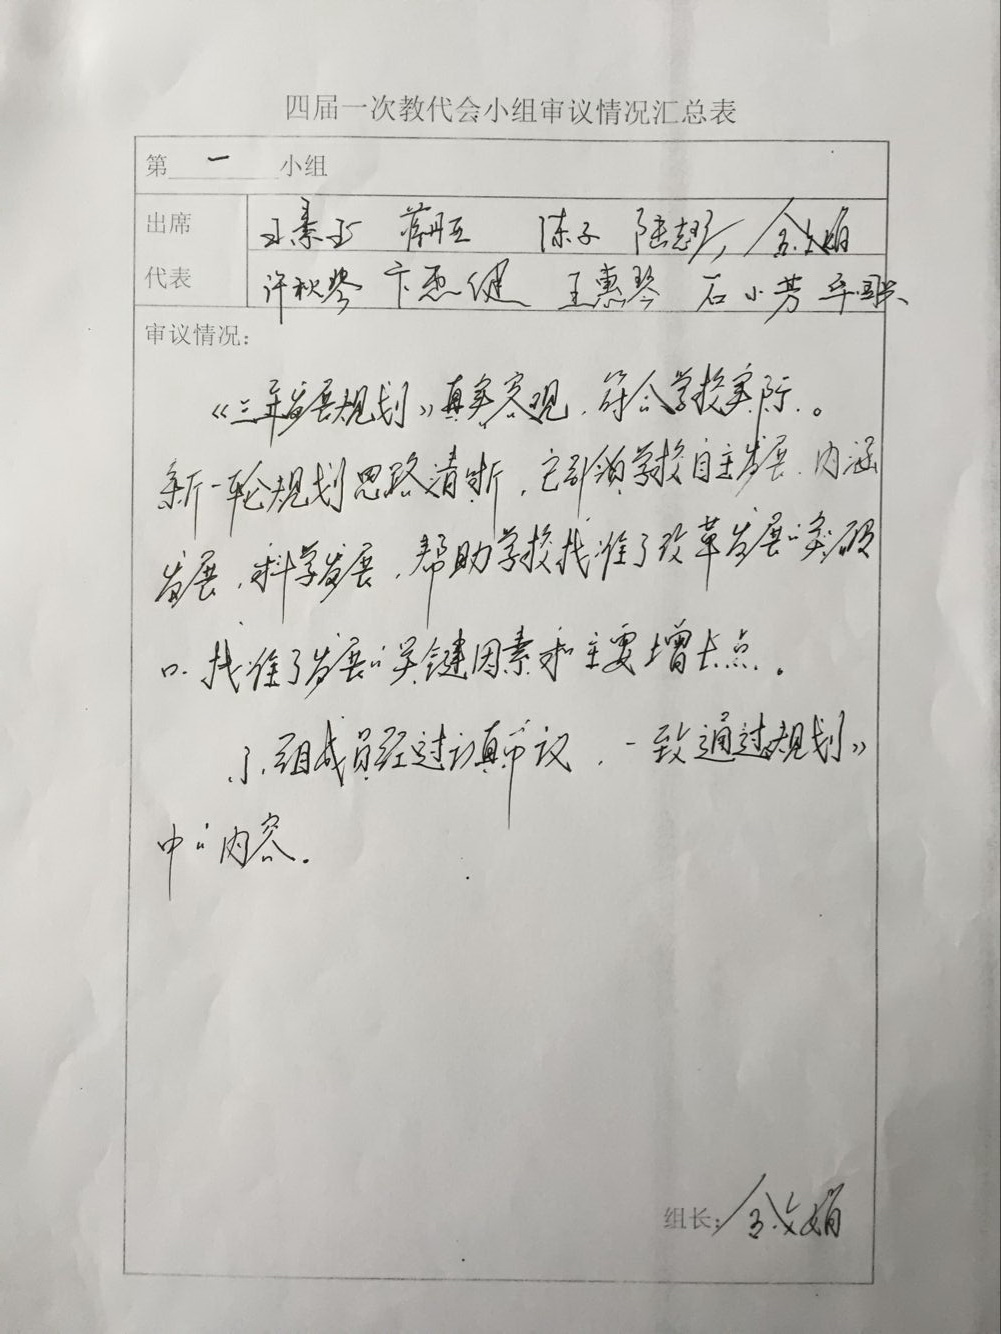 四届一次教代会小组审议情况汇总表
第 一 小组
出席 王素玉 蒋丹五 陈子 陆志珍 金文娟
代表 许秋琴 卞惠健 王惠琴 石小芳
审议情况：
《三年发展规划》真实客观，符合学校实际。
新一轮规划思路清晰，它引领学校自主发展、内涵
发展、科学发展，帮助学校找准了改革发展的突破
口，找准了发展的关键因素和主要增长点。
小组成员经过认真审议，一致通过规划》
中的内容。
组长：金文娟